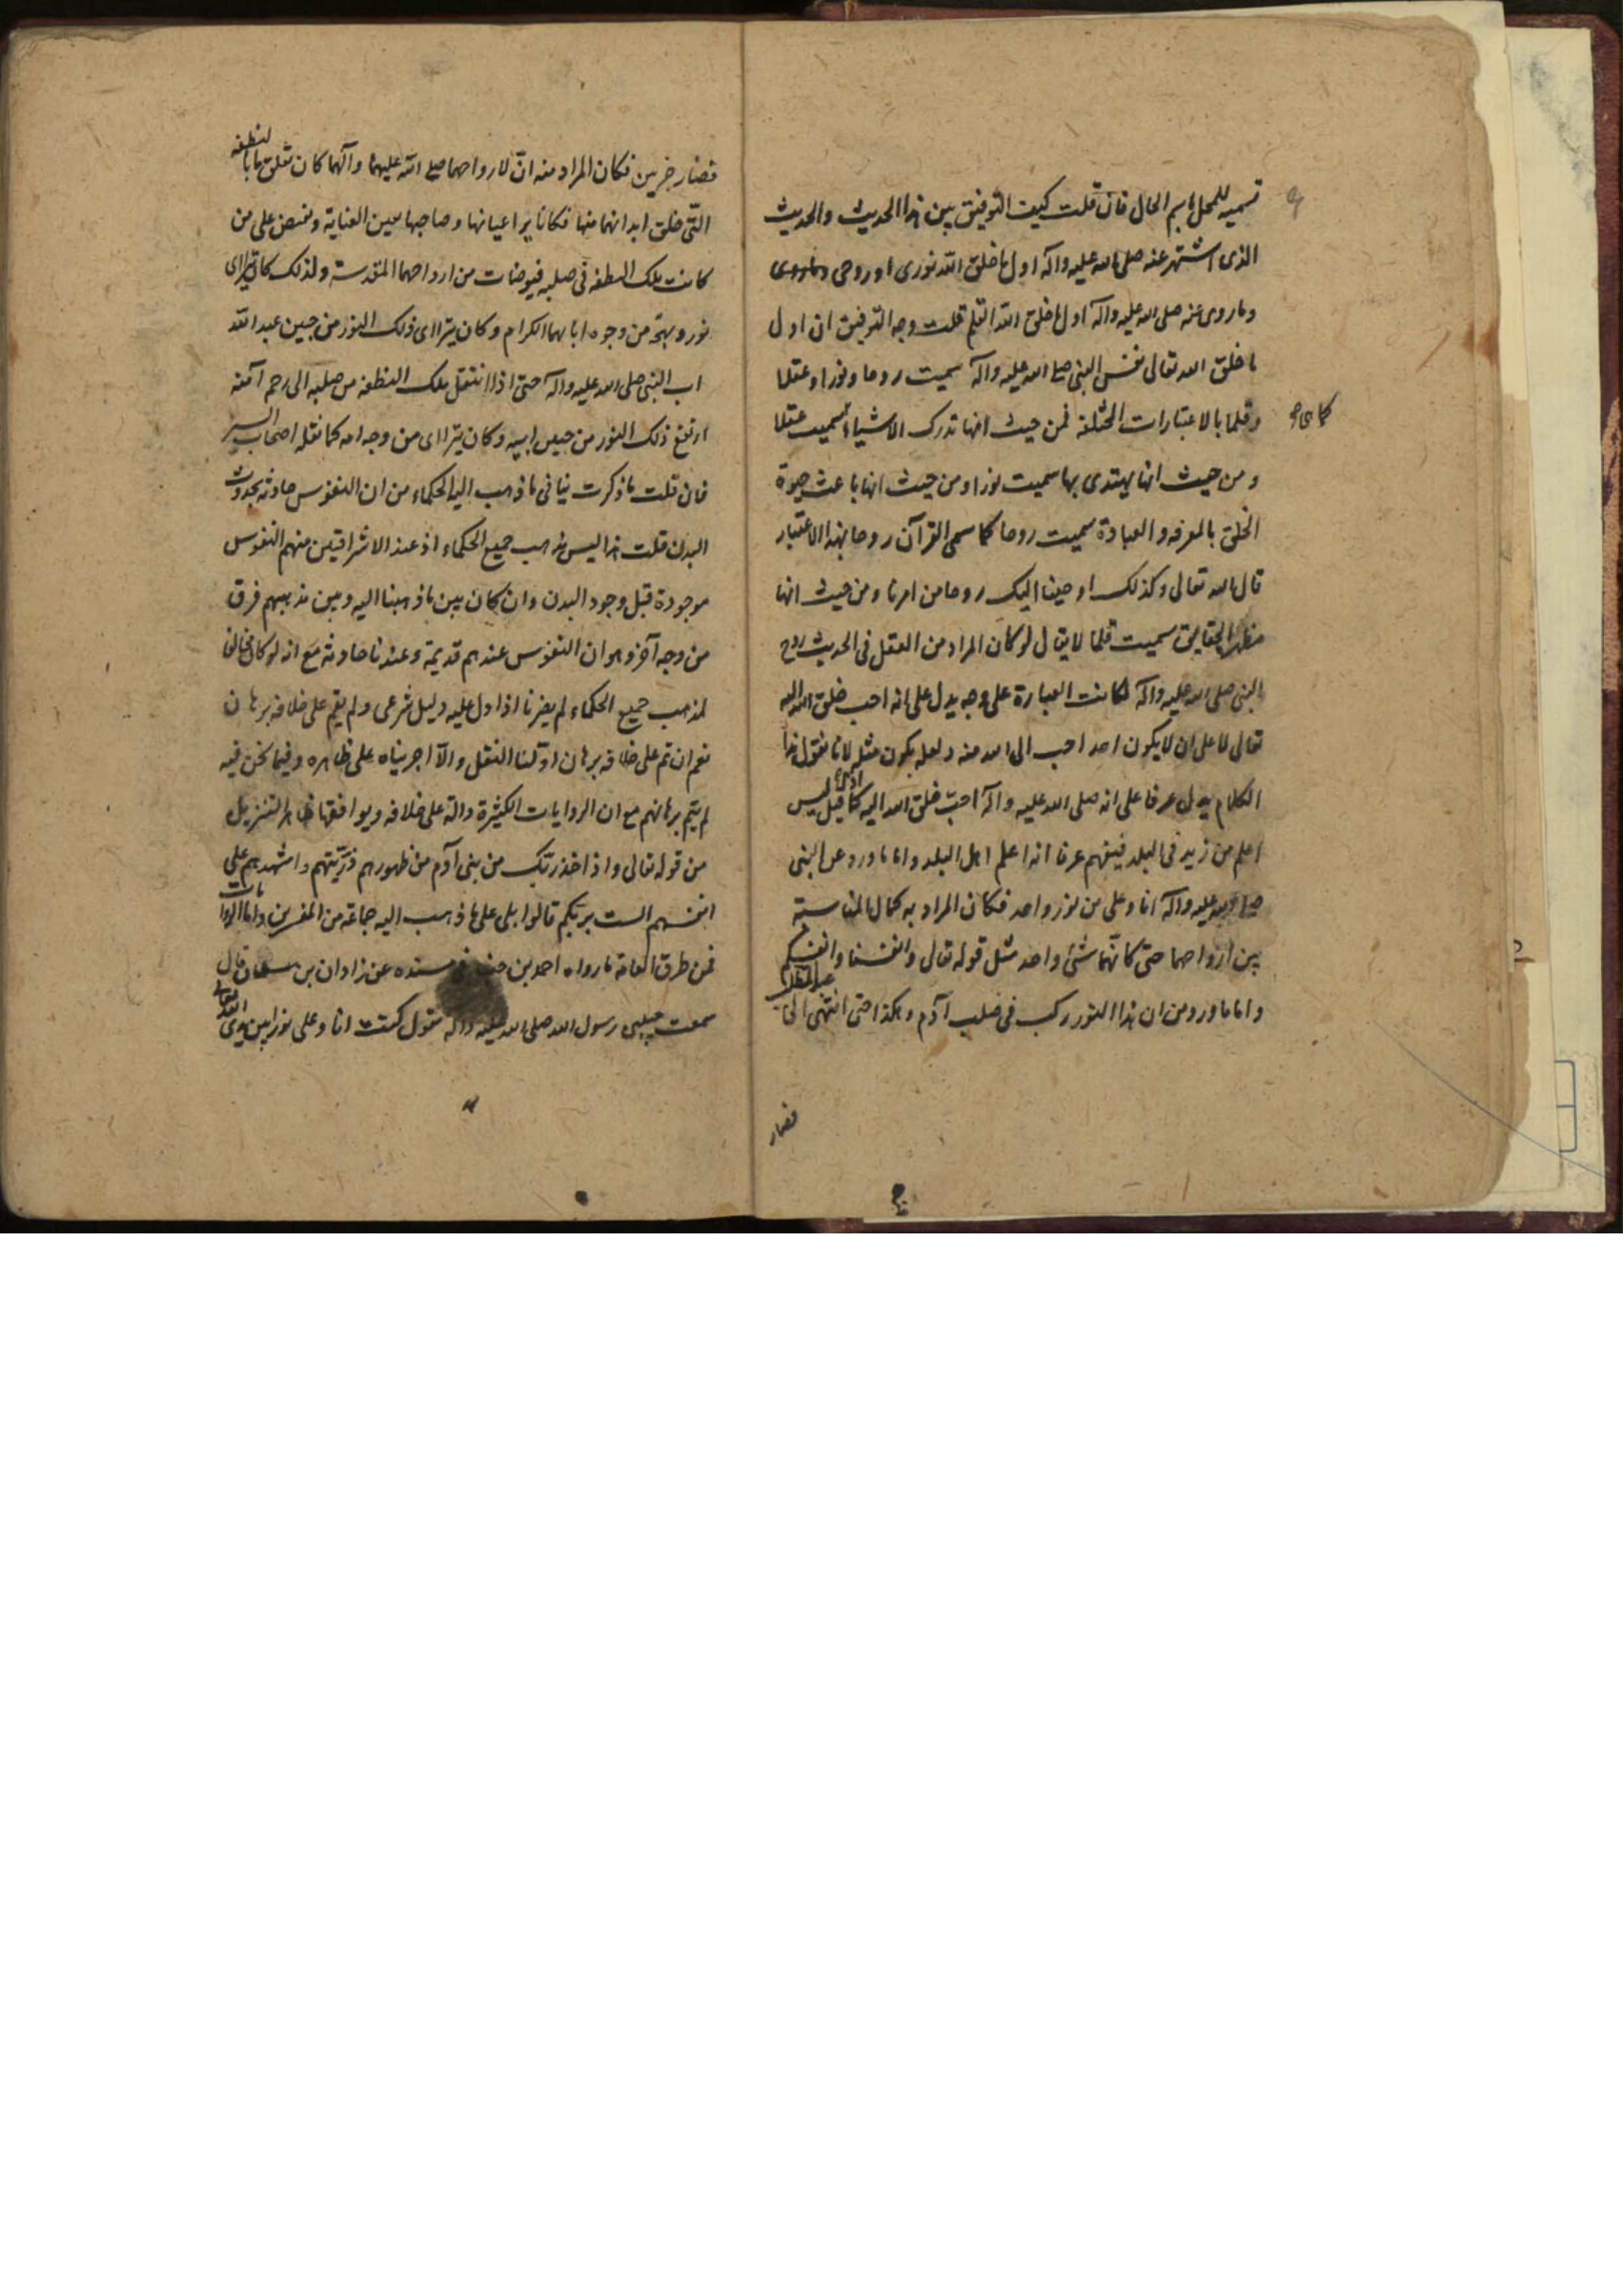 تسمية للمحل باسم الحال فان قلت كيف التوفيق بين هذا الحديث والحديث
الذى اشتهر عنه صلى الله عليه وآله اول ما خلق الله نورى او روحى
وما روى عنه صلى الله عليه وآله اول ما خلق الله القلم قلت وجه التوفيق ان اول
ما خلق الله تعالى نفس النبى صلى الله عليه وآله سميت روحا ونورا وعقلا
وقلما بالاعتبارات المختلفة فمن حيث انها تدرك الاشياء سميت عقلا
ومن حيث انها يهتدى بها سميت نورا ومن حيث انها باعث حيوة
الخلق بالمعرفة والعبادة سميت روحا كما سمى القرآن روحا بهذا الاعتبار
قال الله تعالى وكذلك اوحينا اليك روحا من امرنا ومن حيث انها
مظهر الحقايق سميت قلما لا يقال لو كان المراد من العقل فى الحديث روح
النبى صلى الله عليه وآله لكانت العبارة على وجه يدل على انه احب خلق الله اليه
تعالى لا على ان لا يكون احد احب الى الله منه ولعله يكون مثله لانا نقول هذا
الكلام يدل عرفا على انه صلى الله عليه وآله احبّ خلق الله اليه كما قيل ليس
اعلم من زيد فى البلد فيفهم عرفا انه اعلم اهل البلد واما ما ورد عن النبى
صلى الله عليه وآله انا وعلى من نور واحد فكان المراد به كمال المناسبة
بين ارواحهما حتى كأنهما شئ واحد مثل قوله تعالى وانفسنا وانفسكم
واما ما ورد من ان هذا النور ركب فى صلب آدم وهكذا حتى انتهى الى عبد المطلب
فصار
فصار جزئين فكان المراد منه انّ لارواحهما صلى الله عليهما وآلهما كان تعلق ما بالنطفة
التّى خلق ابدانهما منها فكانا يراعيانها وصاحبها بعين العناية ويفيض على من
كانت تلك النطفة فى صلبه فيوضات من ارواحهما المقدسة ولذلك كان يتراءى
نور وبهجة من وجوه ابائهما الكرام وكان يتراءى ذلك النور من جبين عبد الله
اب النبى صلى الله عليه وآله حتى اذا انتقل تلك النطفة من صلبه الى رحم آمنة
ارتفع ذلك النور من جبين ابيه وكان يتراءى من وجه امه كما نقله اصحاب السير
فان قلت ما ذكرت ينافى ما ذهب اليه الحكماء من ان النفوس حادثة بحدوث
البدن قلت هذا ليس مذهب جميع الحكماء اذ عند الاشراقيين منهم النفوس
موجودة قبل وجود البدن وان كان بين ما ذهبنا اليه وبين مذهبهم فرق
من وجه آخر وهو ان النفوس عندهم قديمة وعندنا حادثة مع انه لو كان مخالفا
لمذهب جميع الحكماء لم يضرنا اذا دل عليه دليل شرعى ولم يقم على خلافه برهان
نعم ان تم على خلافه برهان اوّلنا النقل والّا اجريناه على ظاهره وفيما نحن فيه
لم يتم برهانهم مع ان الروايات الكثيرة دالة على خلافه ويوافقها ظاهر التنزيل
من قوله تعالى واذ اخذ ربّك من بنى آدم من ظهورهم ذرّيّتهم واشهدهم على
انفسهم الست بربّكم قالوا بلى على ما ذهب اليه جماعة من المفسرين واما الروايات
فمن طرق العامة ما رواه احمد بن حنبل فى مسنده عن زاذان بن سلمان قال
سمعت حبيبى رسول الله صلى الله عليه وآله يقول كنت انا وعلى نورا بين يدى الله تعالى